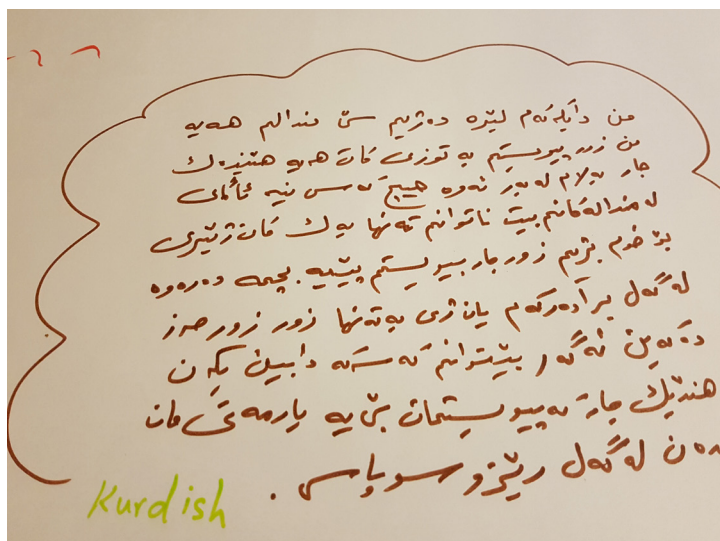 من دایکەکەم لێرە دەژیم سێ منداڵم هەیە
من زۆر پیویستم بە توزێ کات هەیە هێندێک
جار بەلام لەبەر ئەوە هیچ کەس نیە ئاگای
لە مندالەکانم بیت ناتوانم تەنها یەک کاتژێری
بۆ خۆم بژیم زور جار پیویستم پێییە بچمە دەرەوە
لەگەل برادەرکەم یان ژی بە تەنها زور زور حەز
دەکەین ئەگەر بیتوانم کەسێکە دابین بکەن
هندێک جار کە پیویستمان بێ یە یارمەتیمان
بدەن لەگەل رێزو سوپاس .
Kurdish